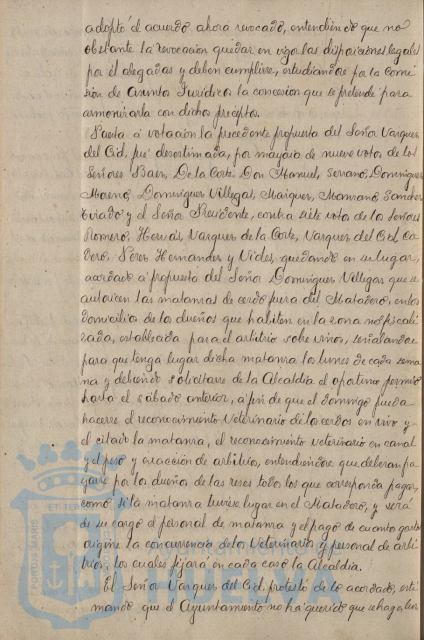 adoptó el acuerdo, ahora revocado, entendiendo que no
obstante la revocación quedar en vigor las disposiciones legales
por él alegadas y deben cumplirse, estudiandose por la Comi
sion de Asuntos Jurídicos la concesion que se pretende para
armonizarla con dichos preceptos.
Puesta á votación la precedente propuesta del Señor Vazquez
del Cid, fué desestimada, por mayoria de nueve votos de los
Señores Baez, De la Corte Don Manuel, Serrano, Dominguez
Moreno, Dominguez Villegas, Maiquez, Manzano, Sanchez
Tirado y el Señor Presidente, contra siete votos de los Señores
Romero, Hervás, Vazquez de la Corte, Vazquez del Cid, Ca
dero, Perez Hernandez y Vides, quedando en su lugar,
acordado á propuesta del Señor Dominguez Villegas que se
autoricen las matanzas de cerdo fuera del Matadero, en los
domicilios de los dueños que habiten en la zona no fiscali
zada, establecida para el arbitrio sobre vinos, señalandose
para que tenga lugar dicha matanza los lunes de cada sema
na y debiendo solicitarse de la Alcaldía el oportuno permiso
hasta el sábado anterior, á fin de que el domingo pueda
hacerse el reconocimiento Veterinario de los cerdos en vivo y
el citado la matanza, el reconocimiento veterinario en canal
y el peso y exacción de arbitrios, entendiendose que deberan pa
garse por los dueños de las reses todo lo que corresponda pagar,
como si la matanza tuviese lugar en el Matadero, y será
de su cargo el personal de matanza y el pago de cuantos gastos
origine la concurrencia de los Veterinarios y personal de arbi
trios, los cuales fijará en cada caso la Alcaldia.
El Señor Vazquez del Cid, protestó de lo acordado, esti
mando que el Ayuntamiento no ha querido que se haga la
AYUNTAMIENTO DE
HUELVA